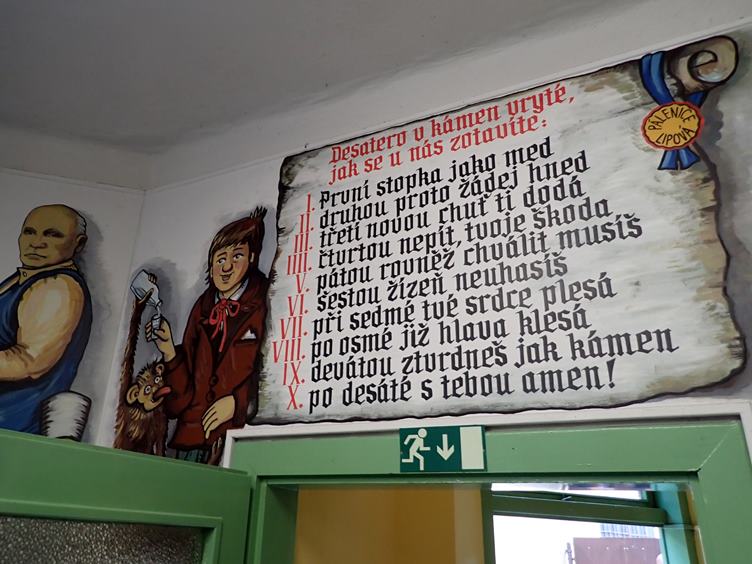 Desatero v kámen vryté,
jak se u nás zotavíte:
I. První stopka jako med
II. druhou proto žádej hned
III. třetí novou chuť ti dodá
IIII. čtvrtou nepít, tvoje škoda
V. pátou rovněž chválit musíš
VI. šestou žízeň neuhasíš
VII. při sedmé tvé srdce plesá
VIII. po osmé již hlava klesá
IX. devátou ztvrdneš jak kámen
X. po desáté s tebou amen!
PÁLENICE
LIPOVÁ